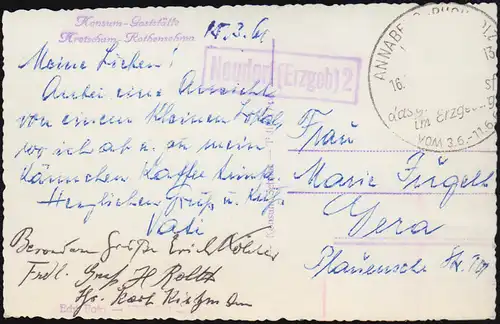 Konsum-Gaststätte
Kretscham-Rothensehma
15.3.61
Meine Lieben!
Anbei eine Ansicht
von einem kleinen Lokal
wo ich ab u. zu mein
Kännchen Kaffee trinke.
Herzlichen Gruß u. Kuß
Vati
Neudorf (Erzgeb) 2
ANNABERG-BUCHHOLZ
16.
das
im Erzgeb
VOM 3.6.-11.6.
Frau
Marie
Gera
Plauensche Str.
Besonders Grüße Erich Köhler
Frdl. Gruß H
Karl
Echt Foto